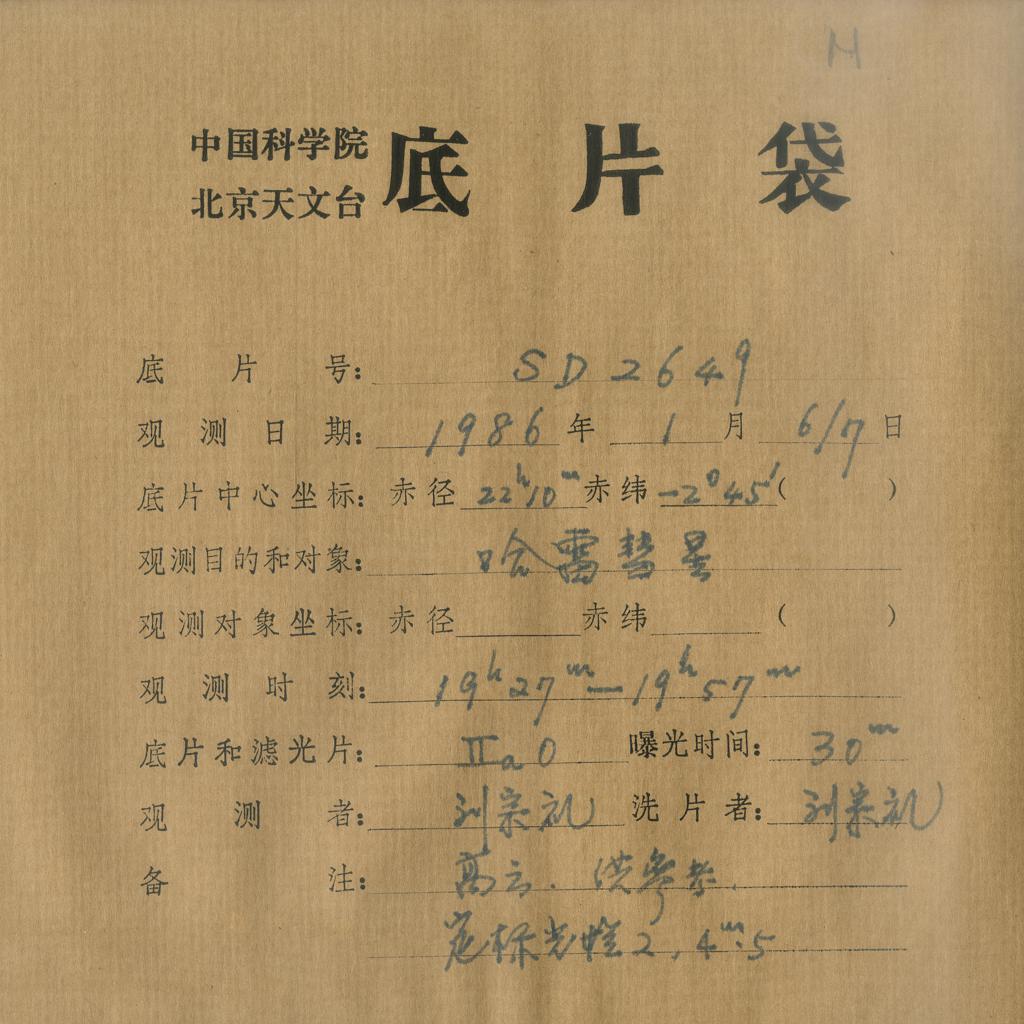 H
中国科学院
北京天文台
底片袋
底片号: SD2649
观测日期: 1986年1月6/7日
底片中心坐标: 赤径22ʰ10ᵐ赤纬-2°45′( )
观测目的和对象: 哈雷彗星
观测对象坐标: 赤径 赤纬 ( )
观测时刻: 19ʰ27ᵐ—19ʰ57ᵐ
底片和滤光片: IIaO 曝光时间: 30ᵐ
观测者: 刘宗礼 洗片者: 刘宗礼
备注: 高云. 供参考.
定标光楔2, 4ᵐ.5